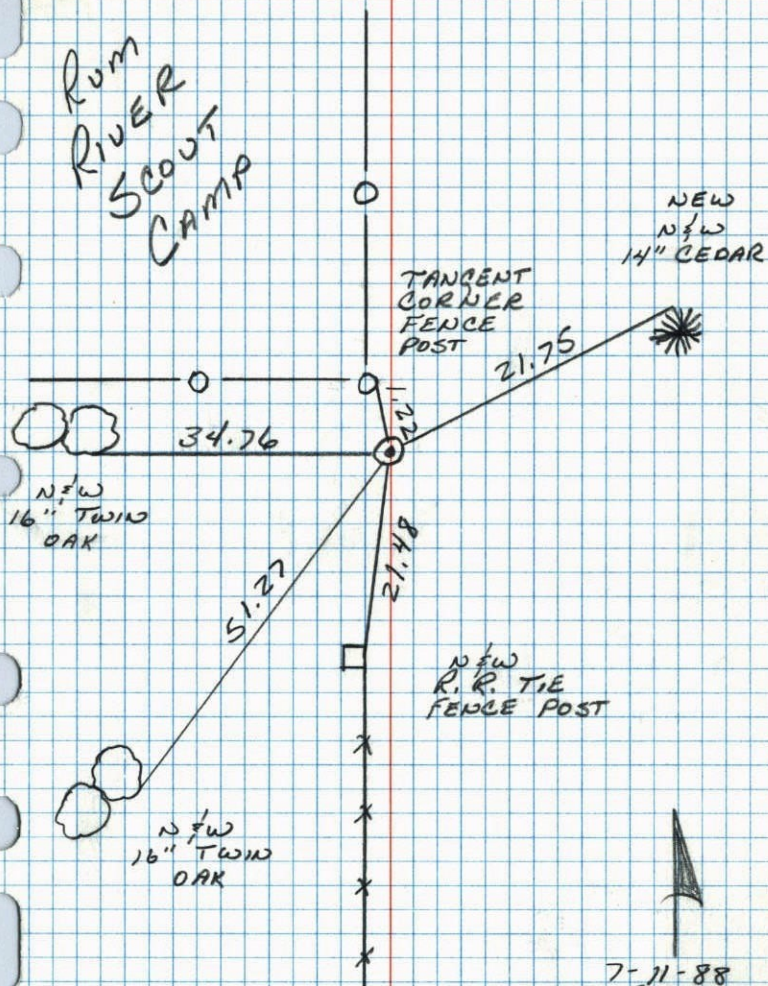 RUM
RIVER
SCOUT
CAMP
NEW
N&W
14" CEDAR
TANGENT
CORNER
FENCE
POST
21.75
2.21
34.76
N&W
16" TWIN
OAK
21.48
51.27
N&W
R. R. TIE
FENCE POST
N&W
16" TWIN
OAK
7-11-88